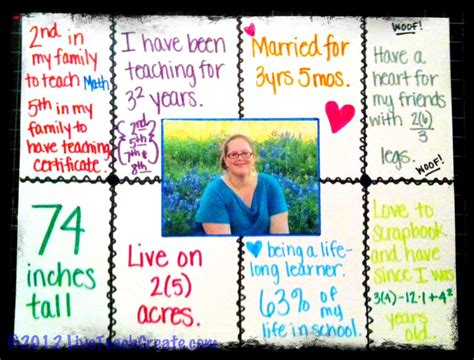 2nd in
my family
to teach Math
5th in my
family to
have teaching
certificate.
I have been
teaching for
3² years.
(2nd
5th
7th &
8th)
Married for
3yrs 5mos.
WOOF!
Have a
heart for
my friends
with 2(6)/3
legs.
WOOF!
74
inches
tall
Live on
2(5)
acres.
being a life-
long learner.
63% of
my
life in school.
Love to
scrapbook
and have
since I was
3(4)-12·1+4²
years
old.
©2012 LiveTeachCreate.com